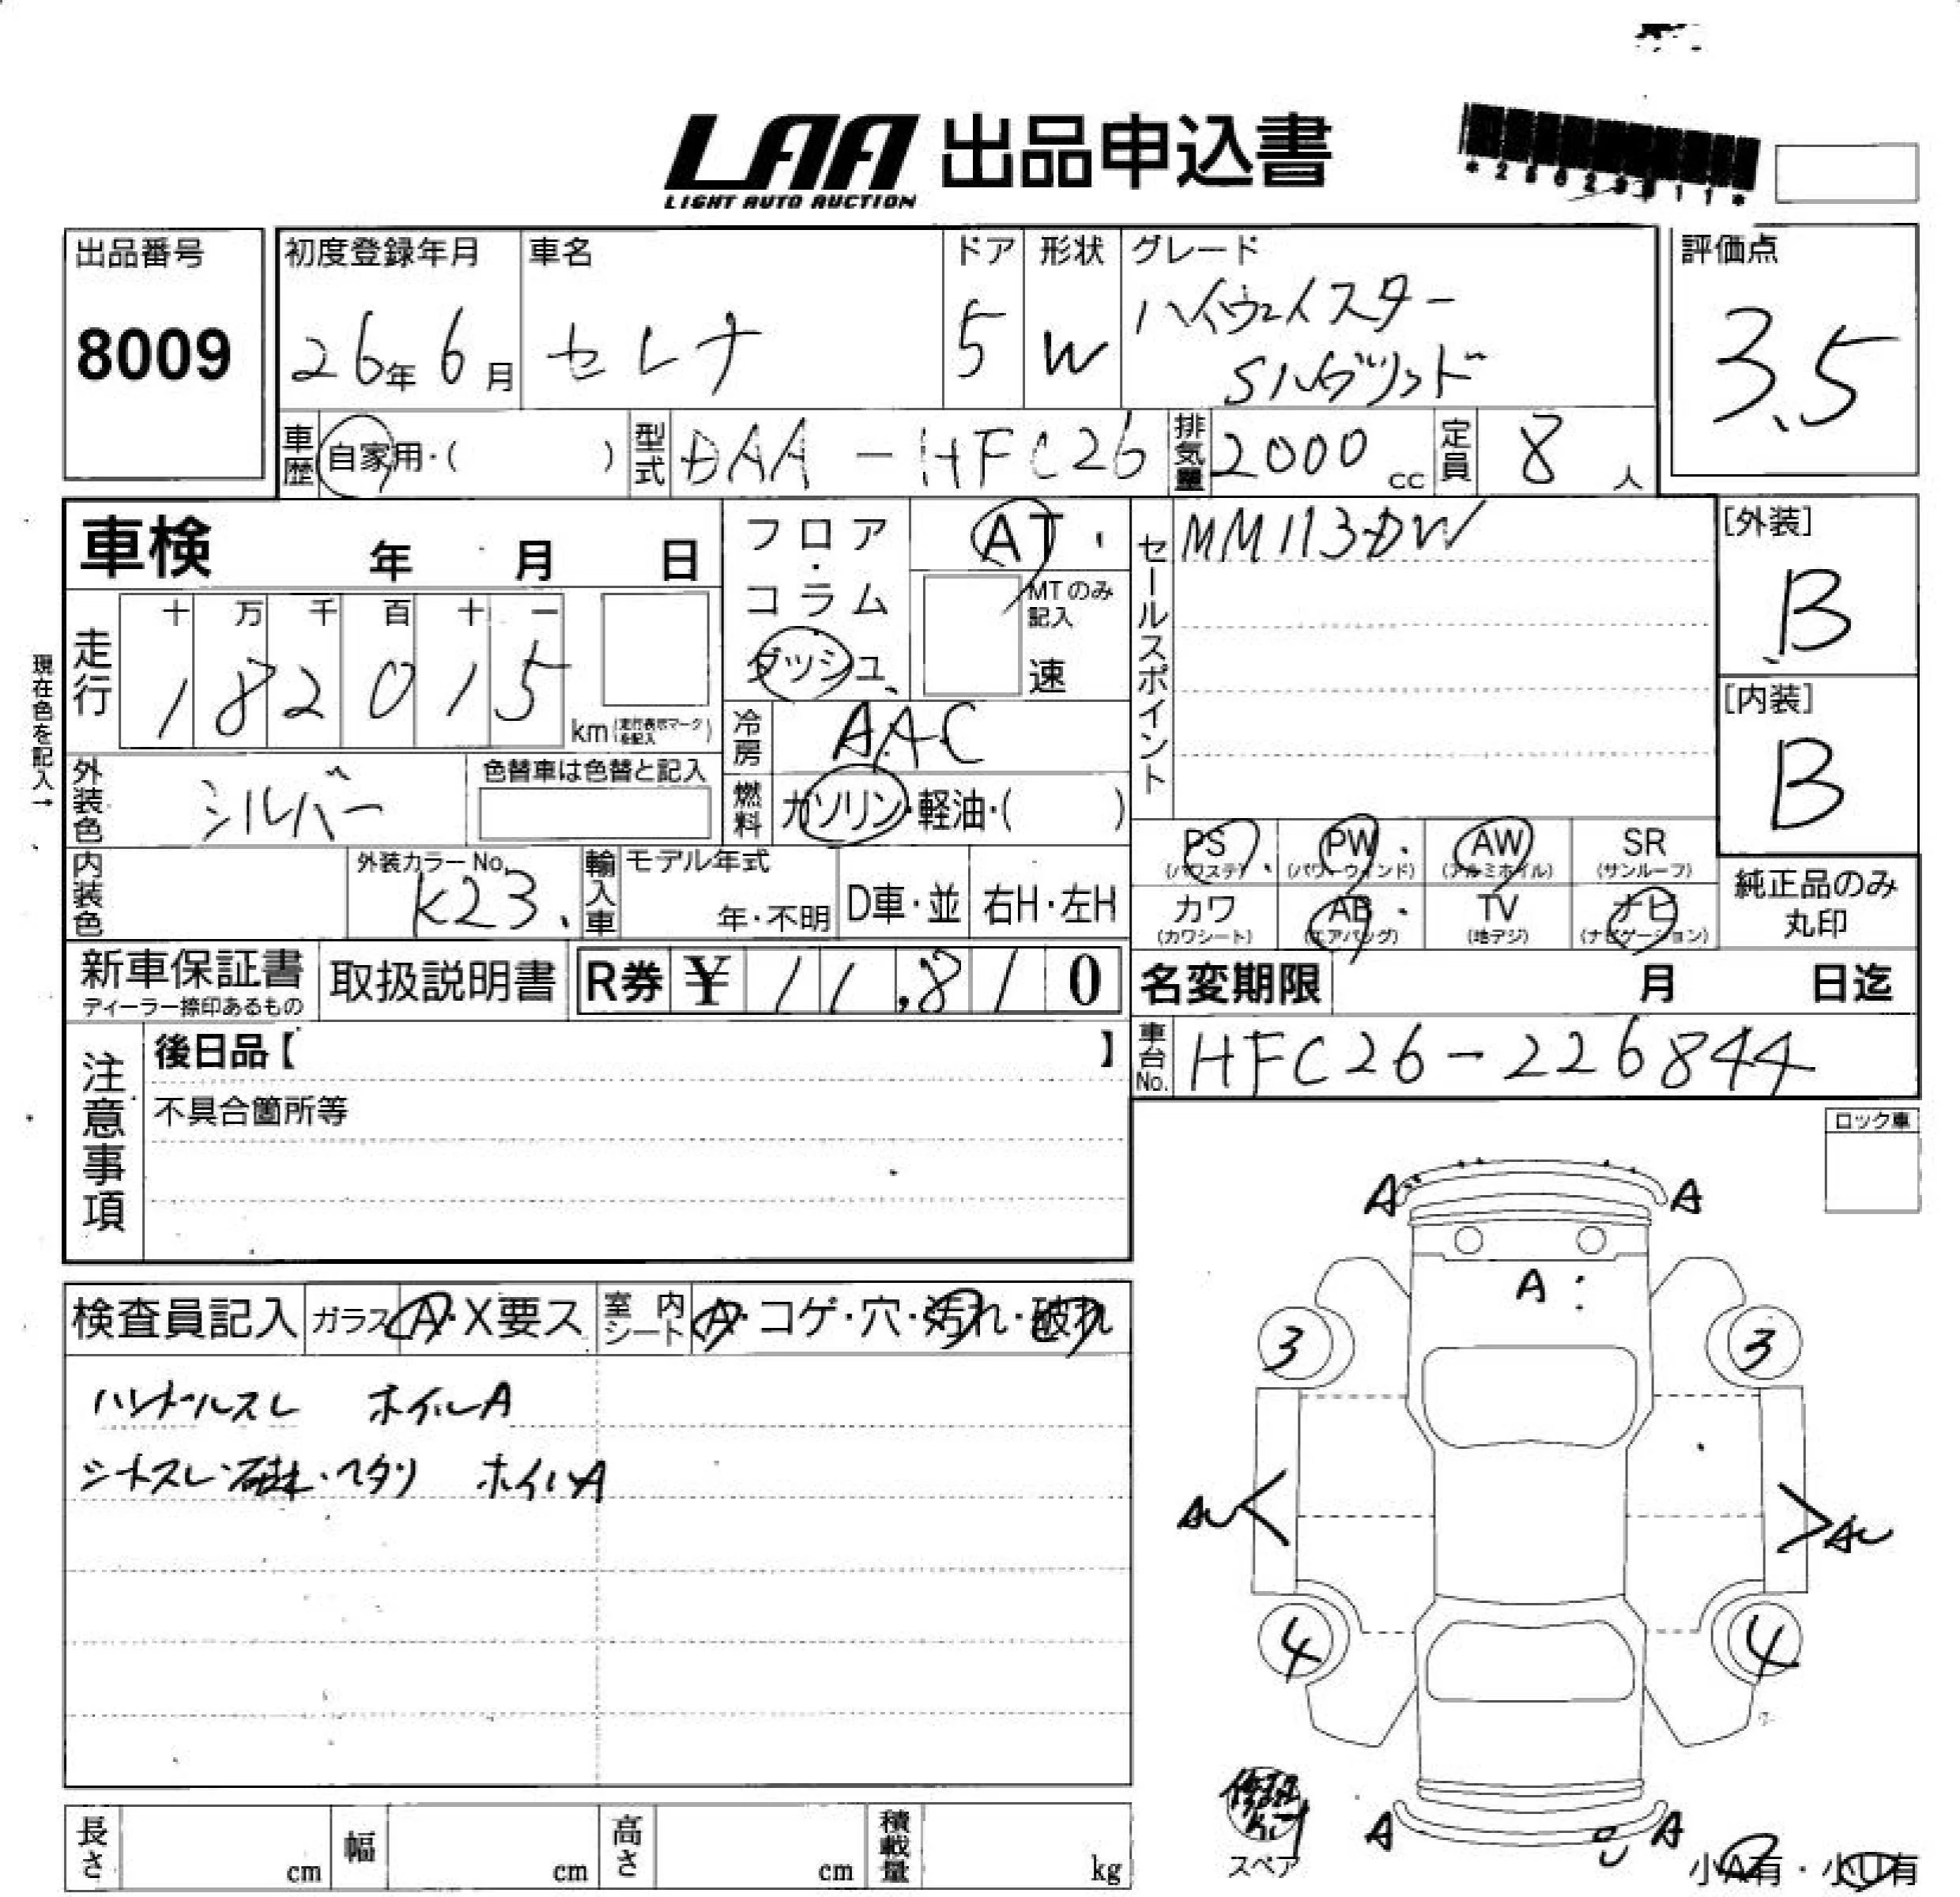 LAA 出品申込書
LIGHT AUTO AUCTION
出品番号
8009
初度登録年月
26年6月
車名
セレナ
ドア
5
形状
W
グレード
ハイウェイスター
Sハイブリッド
評価点
3.5
車歴
自家用・( )
型式
DAA-HFC26
排気量
2000 cc
定員
8 人
車検 年 月 日
フロア・コラム
ダッシュ
AT
MTのみ記入
速
セールスポイント
MM113-DW
[外装]
B
[内装]
B
現在色を記入→
走行
十 万 千 百 十 一
1 8 2 0 1 5
km (走行表示マークを記入)
冷房
AAC
外装色
シルバー
色替車は色替と記入
燃料
ガソリン・軽油・( )
PS (パワステ)・PW (パワーウィンド)・AW (アルミホイル) SR (サンルーフ)
カワ (カワシート) AB (エアバッグ)・TV (地デジ) ナビ (ナビゲーション)
純正品のみ
丸印
内装色
外装カラーNo.
K23
輸入車
モデル年式
年・不明
D車・並
右H・左H
新車保証書
ディーラー捺印あるもの
取扱説明書
R券 ¥ 11,810
名変期限 月 日迄
車台No.
HFC26-226844
注意事項
後日品【 】
不具合箇所等
ロック車
検査員記入
ガラス A・X要ス
室内シート A・コゲ・穴・汚れ・破れ
ハンドルスレ ホイルA
シートスレ・破れ・ヘタリ ホイルA
A A
A
3 3
AU AU
4 4
A A
U
修理キット
スペア
小A有・小U有
長さ cm
幅 cm
高さ cm
積載量 kg